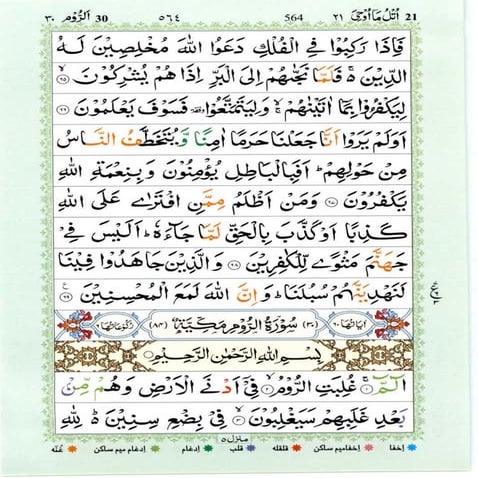 21 اُتْلُ مَآ اُوْحِیَ ٢١ 564 ٥٦٤ 30 اَلرُّوْم ٣٠
فَاِذَا رَكِبُوْا فِی الْفُلْكِ دَعَوُا اللّٰهَ مُخْلِصِیْنَ لَهُ
الدِّیْنَ ۚ فَلَمَّا نَجّٰىهُمْ اِلَى الْبَرِّ اِذَا هُمْ یُشْرِكُوْنَ ۙ﴿٦٥﴾
لِیَكْفُرُوْا بِمَاۤ اٰتَیْنٰهُمْ ۙۚ وَلِیَتَمَتَّعُوْا ۥ فَسَوْفَ یَعْلَمُوْنَ ﴿٦٦﴾
اَوَلَمْ یَرَوْا اَنَّا جَعَلْنَا حَرَمًا اٰمِنًا وَّ یُتَخَطَّفُ النَّاسُ
مِنْ حَوْلِهِمْ ؕ اَفَبِالْبَاطِلِ یُؤْمِنُوْنَ وَبِنِعْمَةِ اللّٰهِ
یَكْفُرُوْنَ ﴿٦٧﴾ وَمَنْ اَظْلَمُ مِمَّنِ افْتَرٰى عَلَى اللّٰهِ
كَذِبًا اَوْ كَذَّبَ بِالْحَقِّ لَمَّا جَآءَهٗ ؕ اَلَیْسَ فِیْ
جَهَنَّمَ مَثْوًى لِّلْكٰفِرِیْنَ ﴿٦٨﴾ وَالَّذِیْنَ جَاهَدُوْا فِیْنَا
لَنَهْدِیَنَّهُمْ سُبُلَنَا ؕ وَ اِنَّ اللّٰهَ لَمَعَ الْمُحْسِنِیْنَ ﴿٦٩﴾
اٰیَاتُهَا ٦٠ ﴿٣٠﴾ سُوْرَةُ الرُّوْمِ مَكِّیَّةٌ ﴿٨٤﴾ رُكُوْعَاتُهَا ٦
بِسْمِ اللّٰهِ الرَّحْمٰنِ الرَّحِیْمِ
الٓمّٓ ۚ﴿١﴾ غُلِبَتِ الرُّوْمُ ۙ﴿٢﴾ فِیْۤ اَدْنَى الْاَرْضِ وَهُمْ مِّنْۢ
بَعْدِ غَلَبِهِمْ سَیَغْلِبُوْنَ ۙ﴿٣﴾ فِیْ بِضْعِ سِنِیْنَ ؕ۬ لِلّٰهِ
منزل ٥
اخفا اخفامیم ساکن قلقله قلب ادغام ادغام میم ساکن غنّه